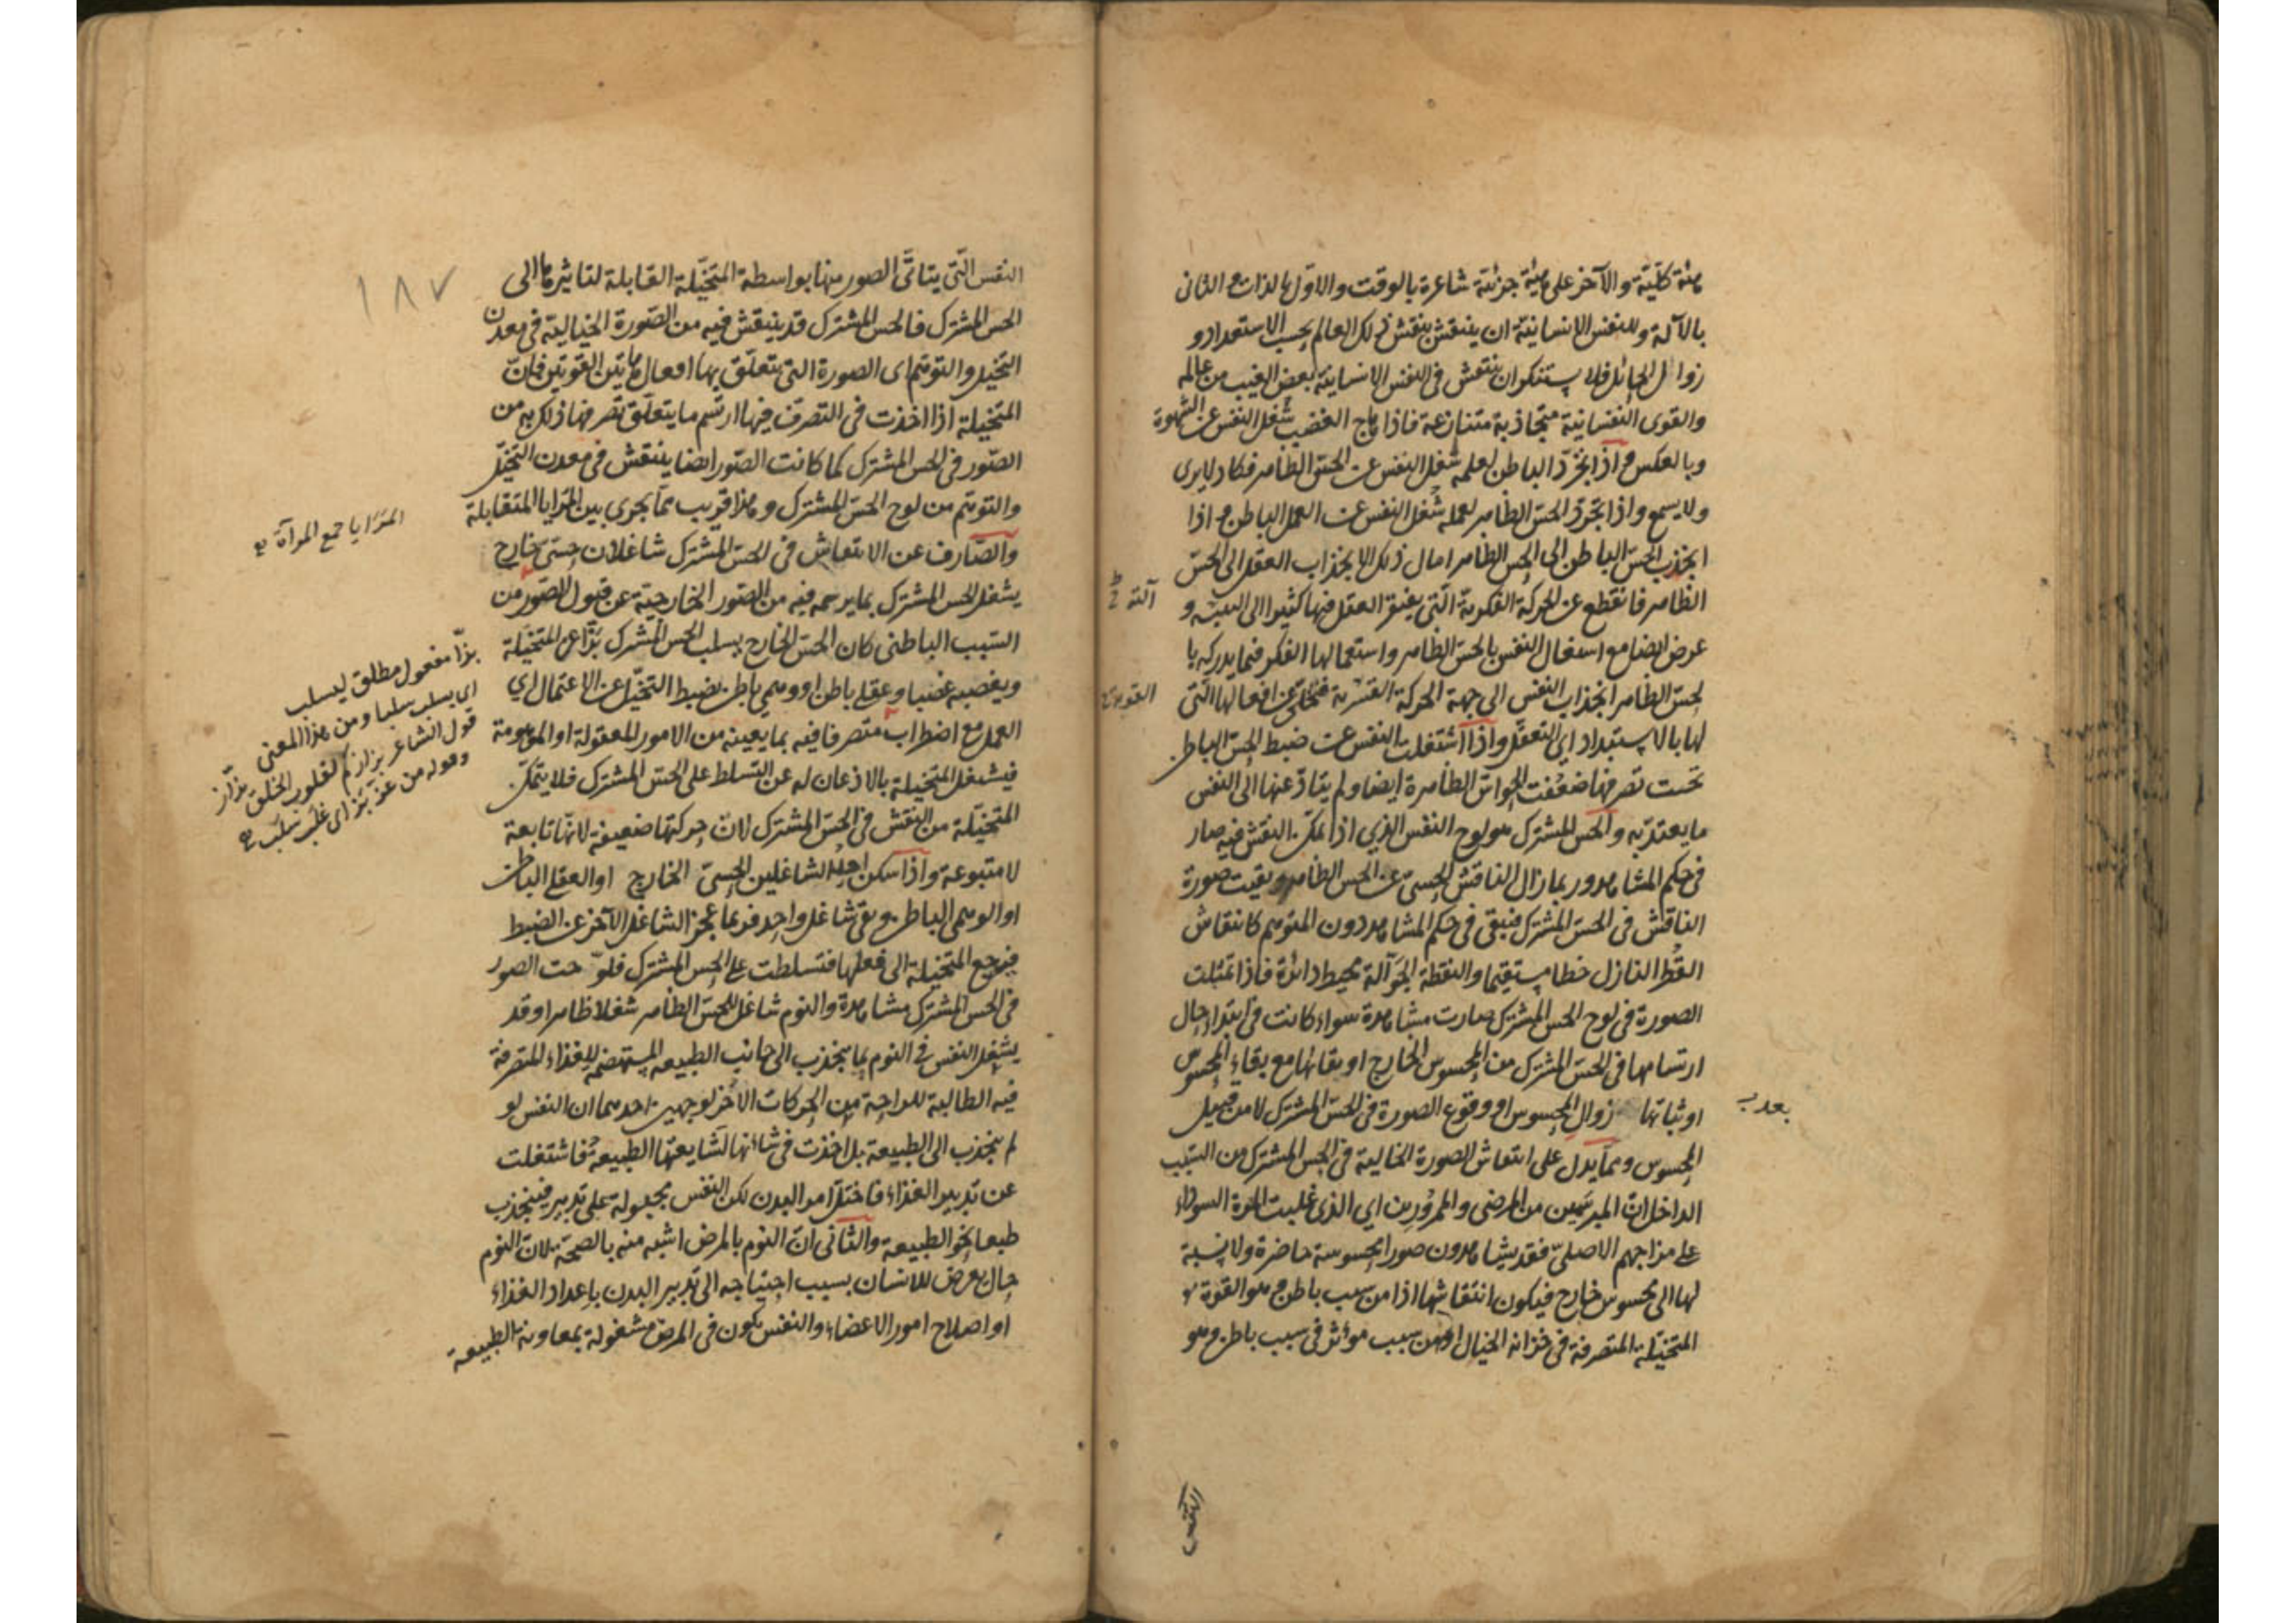 هيئة كلّيّة والآخر على هيئة جزئيّة شاعرة بالوقت والاوّل بالذات والثانى
بالآلة وللنفس الانسانيّة ان ينتقش بنقش ذلك العالم بحسب الاستعداد و
زوال الحائل فلا يستنكر ان ينتقش فى النفس الانسانية بعض الغيب من عالمه
والقوى النفسانية متجاذبة متنازعة فاذا هاج الغضب شغل النفس عن الشهوة
وبالعكس ح اذا تجرّد الباطن لعمله شغل النفس عن الحسّ الظاهر فكاد لايرى
ولا يسمع واذا تجرّد الحسّ الظاهر لعمله شغل النفس عن العمل الباطن ح اذا
انجذب الحسّ الباطن الى الحسّ الظاهر امال ذلك الانجذاب العقل الى الحسّ
الظاهر فانقطع عن الحركة الفكرية الّتى يفتقر العقل فيها كثيرا الى آلته و
عرض ايضا مع اشتغال النفس بالحسّ الظاهر واستعمالها الفكر فيما يدركه با
لحسّ الظاهر انجذاب النفس الى جهة الحركة القويّة فتخلّى عن افعالها الّتى
لها بالاستبداد اى التعقّل واذا اشتغلت النفس عن ضبط الحسّ الباطن
تحت تصرفها ضعفت الحواسّ الظاهرة ايضا ولم يتأدّ عنها الى النفس
ما يعتدّ به والحس المشترك هو لوح النفس الذى اذا تمكّن النقش فيه صار
فى حكم المشاهد وربما زال الناقش الحسىّ عن الحس الظاهر وبقيت صورة
الناقش فى الحسّ المشترك فبقى فى حكم المشاهد دون المتوهم كانتقاش
القطر النازل خطا مستقيما والنقطة الجوّالة محيط دائرة فاذا تمثلت
الصورة فى لوح الحس المشترك صارت مشاهدة سواء كانت فى ابتداء حال
ارتسامها فى الحسّ المشترك من المحسوس الخارج او بقائها مع بقاء المحسوس
او ثباتها بعد زوال المحسوس او وقوع الصورة فى الحسّ المشترك لا من قبل
المحسوس ومما يدل على انتقاش الصورة الخيالية فى الحس المشترك من السّبب
الداخل انّ المبرسمين من المرضى والممرورين اى الذى غلبت المرّة السوداء
على مزاجهم الاصلىّ فقد يشاهدون صورا محسوسة حاضرة ولا نسبة
لها الى محسوس خارج فيكون انتقاشها اذا من سبب باطن ح هو القوّة
المتخيّلة المتصرفة فى خزانة الخيال او من سبب مؤثر فى سبب باطن وهو
النفس
النفس الّتى يتأتّى الصور منها بواسطة المتخيّلة القابلة لتأثيرها الى
الحس المشترك فالحس المشترك قد ينتقش فيه من الصّورة الخيالية فى معدن
التخيل والتوهّم اى الصورة التى يتعلّق بها افعال هاتين القوتين فانّ
المتخيلة اذا اخذت فى التصرف فيها ارتسم ما يتعلّق تصرفها ذلك به من
الصّور فى الحس المشترك كما كانت الصّور ايضا ينتقش فى معدن التخيّل
والتوهّم من لوح الحسّ المشترك وهذا قريب ممّا يجرى بين المرايا المتقابلة
والصّارف عن الانتقاش فى الحسّ المشترك شاغلان حسىّ خارج
يشغل الحس المشترك بما يرسمه فيه من الصّور الخارجيّة عن قبول الصّور من
السّبب الباطنى كان الحسّ الخارج يسلب الحس المشترك بزّا عن المتخيّلة
ويغصبه غصبا وعقلى باطن او وهمى باطن يضبط التخيّل عن الاعتمال اى
العمل مع اضطراب متصرفا فيه بما يعينه من الامور المعقولة او الموهومة
فيشغل المتخيلة بالاذعان له عن التسلط على الحسّ المشترك فلا يتمكّن
المتخيّلة من النقش فى الحسّ المشترك لانّ حركتها ضعيفة لانّها تابعة
لا متبوعة واذا سكن احد الشاغلين الحسىّ الخارج او العقلى الباطن
او الوهمى الباطن وبقى شاغل واحد فربما عجز الشاغل الآخر عن الضبط
فيرجع المتخيلة الى فعلها فتسلطت على الحس المشترك فلوّحت الصور
فى الحس المشترك مشاهدة والنوم شاغل للحسّ الظاهر شغلا ظاهرا وقد
يشغل النفس فى النوم بما ينجذب الى جانب الطبيعة المستهضمة للغذاء المتصرفة
فيه الطالبة للراحة من الحركات الاخر لوجهين احدهما ان النفس لو
لم ينجذب الى الطبيعة بل اخذت فى شأنها لشايعتها الطبيعة فاشتغلت
عن تدبير الغذاء فاختلّ امر البدن لكن النفس مجبولة على تدبيره فينجذب
طبعا نحو الطبيعة والثانى انّ النوم بالمرض اشبه منه بالصحة لانّ النوم
حال يعرض للانسان بسبب احتياجه الى تدبير البدن باعداد الغذاء
او اصلاح امور الاعضاء والنفس يكون فى المرض مشغولة بمعاونة الطبيعة
١٨٧
المرايا جمع المرآة
بزّا مفعول مطلق ليسلب
اى يسلب سلبا ومن هذا المعنى
قول الشاعر
وقوله من عزّ بزّ اى غلب سلب